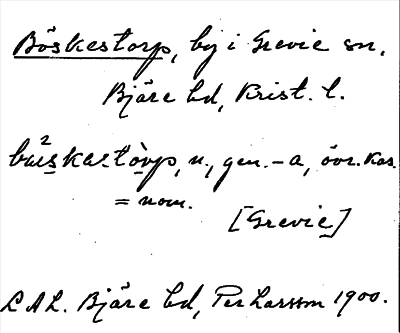 Böskestorp, by i Grevie sn,
Bjäre hd, Krist. l.
n, gen. -a, övr. kas.
= nom.
[Grevie]
LAL. Bjäre hd, Per Larsson 1900.